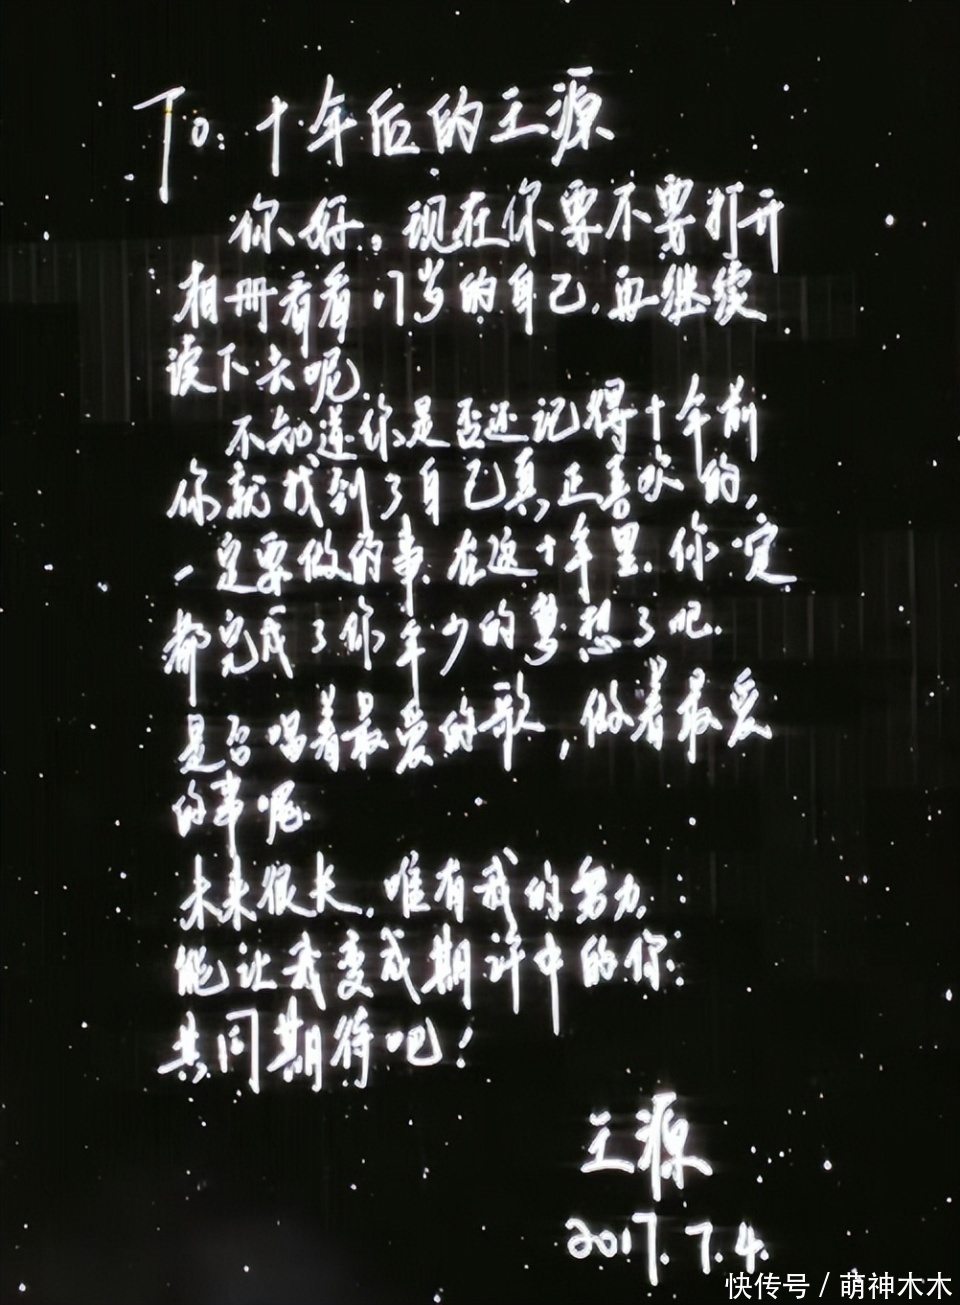 To:十年后的王源
你好,现在你要不要打开
相册看看17岁的自己,再继续
读下去呢
不知道你是否还记得十年前
你就找到了自己真正喜欢的,
一定要做的事.在这十年里.你一定
都完成了你年少的梦想了吧.
是否唱着最爱的歌,做着最爱
的事呢.
未来很长.唯有我的努力.
能让我变成期许中的你.
共同期待吧!
王源
2017.7.4.
快传号/萌神木木